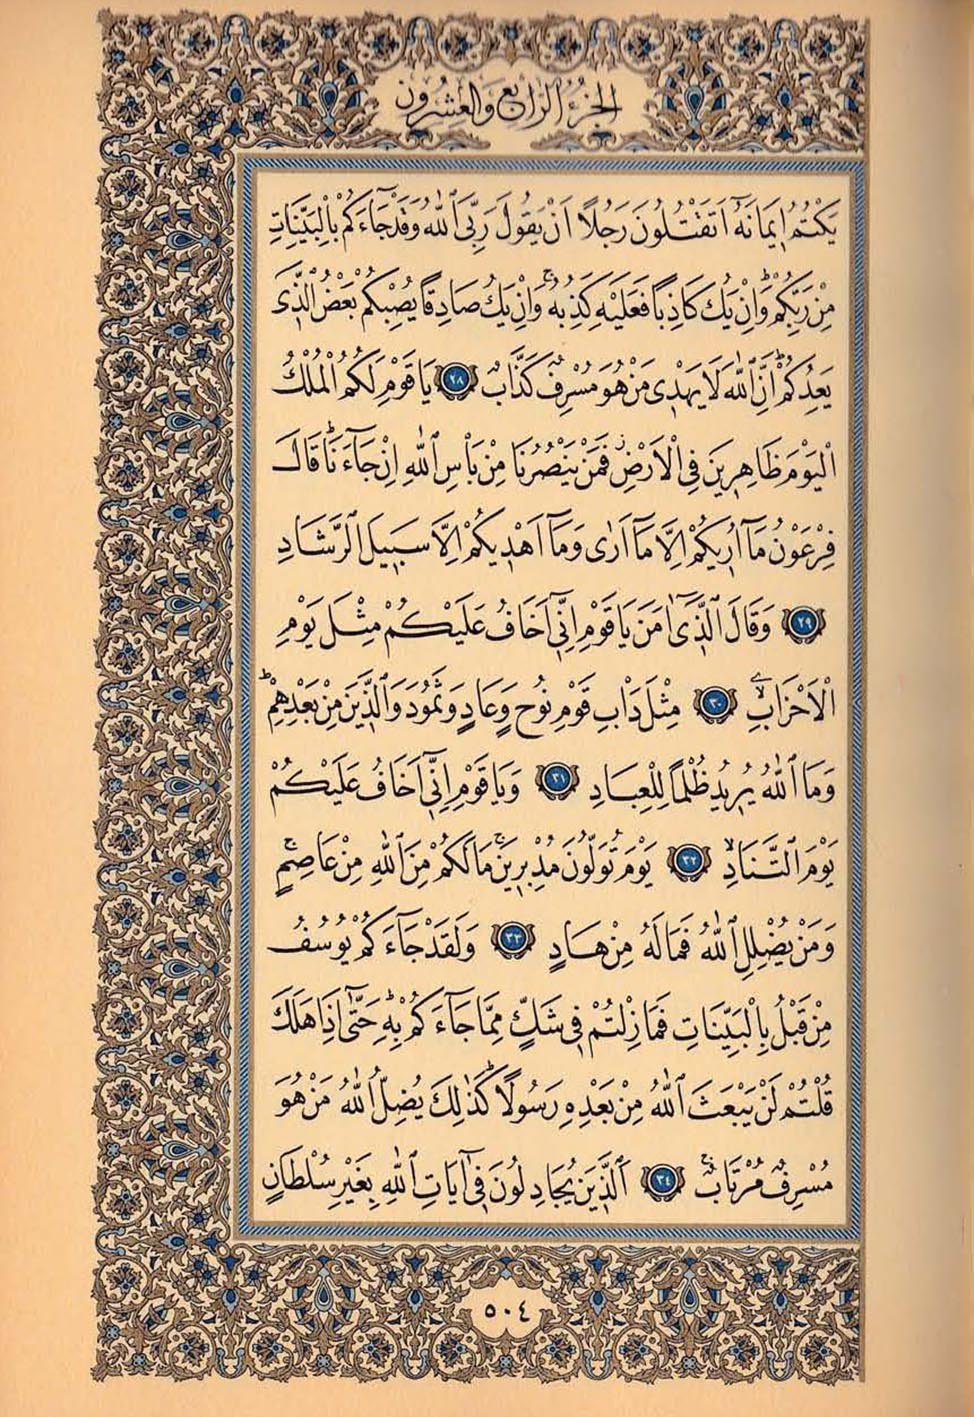 الجزء الرابع والعشرون
يَكْتُمُ اِيمَانَهُٓ اَتَقْتُلُونَ رَجُلًا اَنْ يَقُولَ رَبِّيَ ٱللّٰهُ وَقَدْ جَٓاءَكُمْ بِالْبَيِّنَاتِ
مِنْ رَبِّكُمْۜ وَاِنْ يَكُ كَاذِبًا فَعَلَيْهِ كَذِبُهُۚ وَاِنْ يَكُ صَادِقًا يُصِبْكُمْ بَعْضُ ٱلَّذِى
يَعِدُكُمْۜ اِنَّ ٱللّٰهَ لَا يَهْدِى مَنْ هُوَ مُسْرِفٌ كَذَّابٌ ٢٨ يَا قَوْمِ لَكُمُ الْمُلْكُ
الْيَوْمَ ظَاهِرِينَ فِى الْاَرْضِۘ فَمَنْ يَنْصُرُنَا مِنْ بَاْسِ ٱللّٰهِ اِنْ جَٓاءَنَاۜ قَالَ
فِرْعَوْنُ مَٓا اُرِيكُمْ اِلَّا مَٓا اَرٰى وَمَٓا اَهْدِيكُمْ اِلَّا سَبِيلَ ٱلرَّشَادِ
٢٩ وَقَالَ ٱلَّذِٓى اٰمَنَ يَا قَوْمِ اِنِّٓى اَخَافُ عَلَيْكُمْ مِثْلَ يَوْمِ
الْاَحْزَابِۙ ٣٠ مِثْلَ دَاْبِ قَوْمِ نُوحٍ وَعَادٍ وَثَمُودَ وَٱلَّذِينَ مِنْ بَعْدِهِمْۜ
وَمَا ٱللّٰهُ يُرِيدُ ظُلْمًا لِلْعِبَادِ ٣١ وَيَا قَوْمِ اِنِّٓى اَخَافُ عَلَيْكُمْ
يَوْمَ ٱلتَّنَادِۙ ٣٢ يَوْمَ تُوَلُّونَ مُدْبِرِينَۚ مَا لَكُمْ مِنَ ٱللّٰهِ مِنْ عَاصِمٍۚ
وَمَنْ يُضْلِلِ ٱللّٰهُ فَمَا لَهُ مِنْ هَادٍ ٣٣ وَلَقَدْ جَٓاءَكُمْ يُوسُفُ
مِنْ قَبْلُ بِالْبَيِّنَاتِ فَمَا زِلْتُمْ فِى شَكٍّ مِمَّا جَٓاءَكُمْ بِهِۜ حَتّٰٓى اِذَا هَلَكَ
قُلْتُمْ لَنْ يَبْعَثَ ٱللّٰهُ مِنْ بَعْدِهِ رَسُولًاۜ كَذٰلِكَ يُضِلُّ ٱللّٰهُ مَنْ هُوَ
مُسْرِفٌ مُرْتَابٌۚ ٣٤ اَلَّذِينَ يُجَادِلُونَ فِٓى اٰيَاتِ ٱللّٰهِ بِغَيْرِ سُلْطَانٍ
٥٠٤